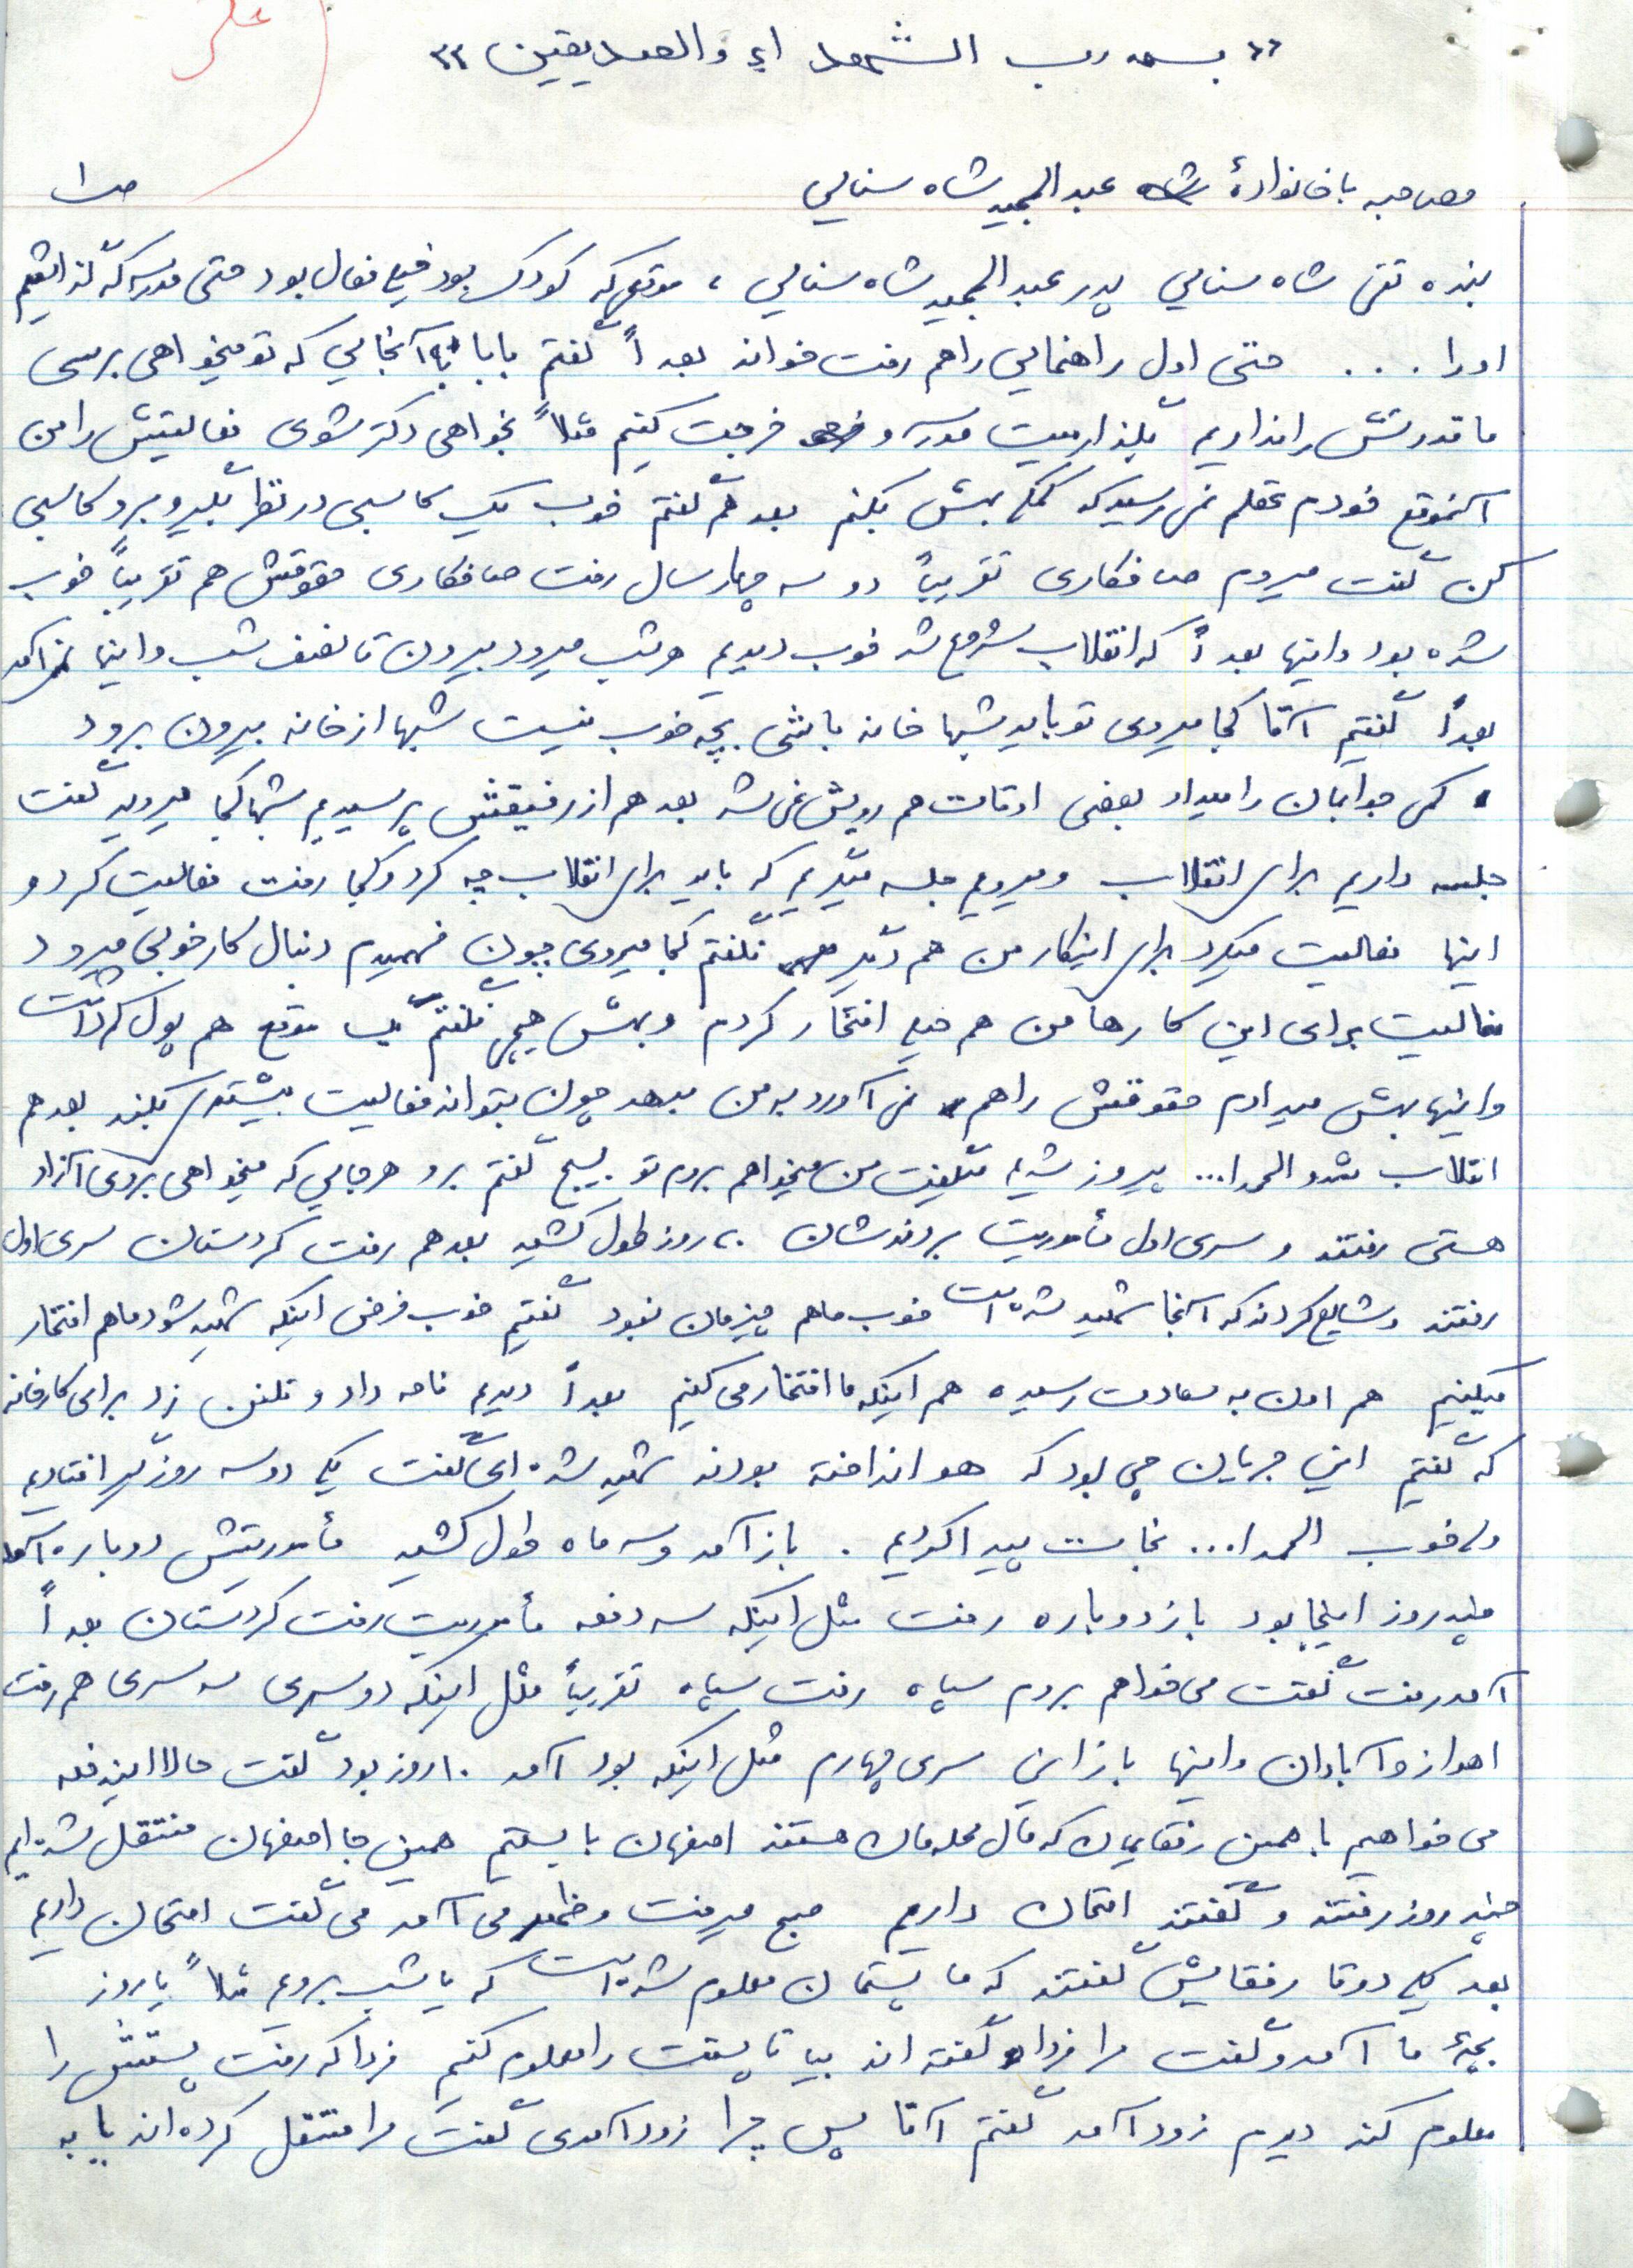 " بسمه رب الشهداء والصدیقین "
مصاحبه با خانوادهٔ عبدالمجید شاه سنایی
ص ۱
بنده تقی شاه سنایی پدر عبدالمجید شاه سنایی ، موقعی که کودک بود خیلی فعال بود حتی مدرسه که گذاشتیم
او را ... حتی اول راهنمایی را هم رفت خواند بعداً گفتم بابا تا آنجایی که تو میخواهی برسی
ما قدرتش را نداریم بگذاریمت مدرسه و خرجت کنیم مثلاً بخواهی دکتر شوی فعالیتش را من
آنموقع خودم عقلم نمی رسید که کمکی بهش بکنم بعد هم گفتم خوب یک کاسبی در نظر بگیر و برو کاسبی
کن گفت میروم صافکاری تقریباً دو سه چهار سال رفت صافکاری حقوقش هم تقریباً خوب
شده بود و اینها بعداً که انقلاب شروع شد خوب دیدیم هر شب میرود بیرون تا نصف شب و اینها نمی آمد
بعداً گفتیم آقا کجا میروی تو باید شبها خانه باشی بچه خوب نیست شبها از خانه بیرون برود
کمی جوابمان را میداد بعضی اوقات هم رویش نمی شد بعد هم از رفیقش پرسیدیم شبها کجا میروید گفت
جلسه داریم برای انقلاب و میرویم جلسه میگیریم که باید برای انقلاب چه کرد و کجا رفت فعالیت کرد و
اینها فعالیت میکرد برای اینکار من هم دیگر نگفتم کجا میروی چون فهمیدم دنبال کار خوبی میرود
فعالیت برای این کارها من هم خیلی افتخار کردم و بهش هیچی نگفتم یک موقع هم پول کم داشت
و اینها بهش میدادم حقوقش را هم نمی آورد به من بدهد چون بتواند فعالیت بیشتری بکند بعد هم
انقلاب شد و الحمدا... پیروز شدیم میگفت من میخواهم بروم تو بسیج گفتم برو هر جایی که میخواهی بروی آزاد
هستی رفتند و سری اول مأموریت بردندشان ۲۰ روز طول کشید بعد هم رفت کردستان سری اول
رفتند و شایع کردند که آنجا شهید شده است خوب ما هم چیزمان نبود گفتیم خوب فرض اینکه شهید شود ما هم افتخار
میکنیم هم اون به سعادت رسیده هم اینکه ما افتخار می کنیم بعداً دیدیم نامه داد و تلفن زد برای کارخانه
که گفتیم این جریان چی بود که هو انداخته بودند شهید شده ای گفت یکی دو سه روز گیر افتادیم
ولی خوب الحمدا... نجات پیدا کردیم . باز آمد و سه ماه طول کشید مأموریتش دوباره آمد
چند روز اینجا بود باز دوباره رفت مثل اینکه سه دفعه مأموریت رفت کردستان بعداً
آمد رفت گفت می خواهم بروم سپاه رفت سپاه تقریباً مثل اینکه دو سری سه سری هم رفت
اهواز و آبادان و اینها باز این سری چهارم مثل اینکه بود آمد ۱۰ روز بود گفت حالا ایندفعه
می خواهیم با همین رفقایمان که مال محله مان هستند اصفهان بایستیم همین جا اصفهان منتقل شده ایم
چند روز رفتند و گفتند امتحان داریم صبح میرفت و ظهر می آمد می گفت امتحان داریم
بعد یکی دو تا رفقایش گفتند که ما پستمان معلوم شده است که یا شب برویم مثلاً یا روز
بچهٔ ما آمد و گفت مرا فردا گفته اند بیا تا پستت را معلوم کنیم فردا که رفت پستش را
معلوم کند دیدم زود آمد گفتم آقا پس چرا زود آمدی گفت مرا منتقل کرده اند یا به